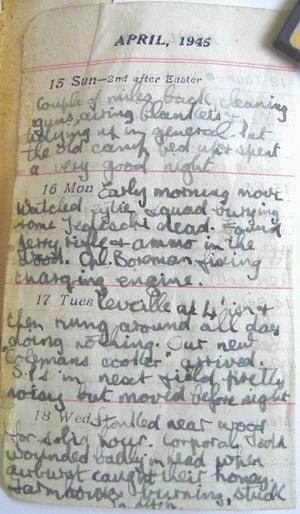 APRIL, 1945
15 Sun—2nd after Easter
Couple of miles back, cleaning
guns, airing blankets &
tidying up in general. Put
the old camp bed up & spent
a very good night
16 Mon Early morning move
Watched Sylie squad burying
some Tedeschi dead. Found
Jerry rifle & ammo in the
Cpl. Boreman fixing
charging engine.
17 Tues Reveille at 4 &
then hung around all day
doing nothing. Our new
"Colemans cooker" arrived.
S.P.s in next field pretty
noisy but moved before night
18 Wed Stonked near wood
for solid hour. Corporal
wounded badly in head when
airburst caught their honey.
Farmhouse burning, stuck